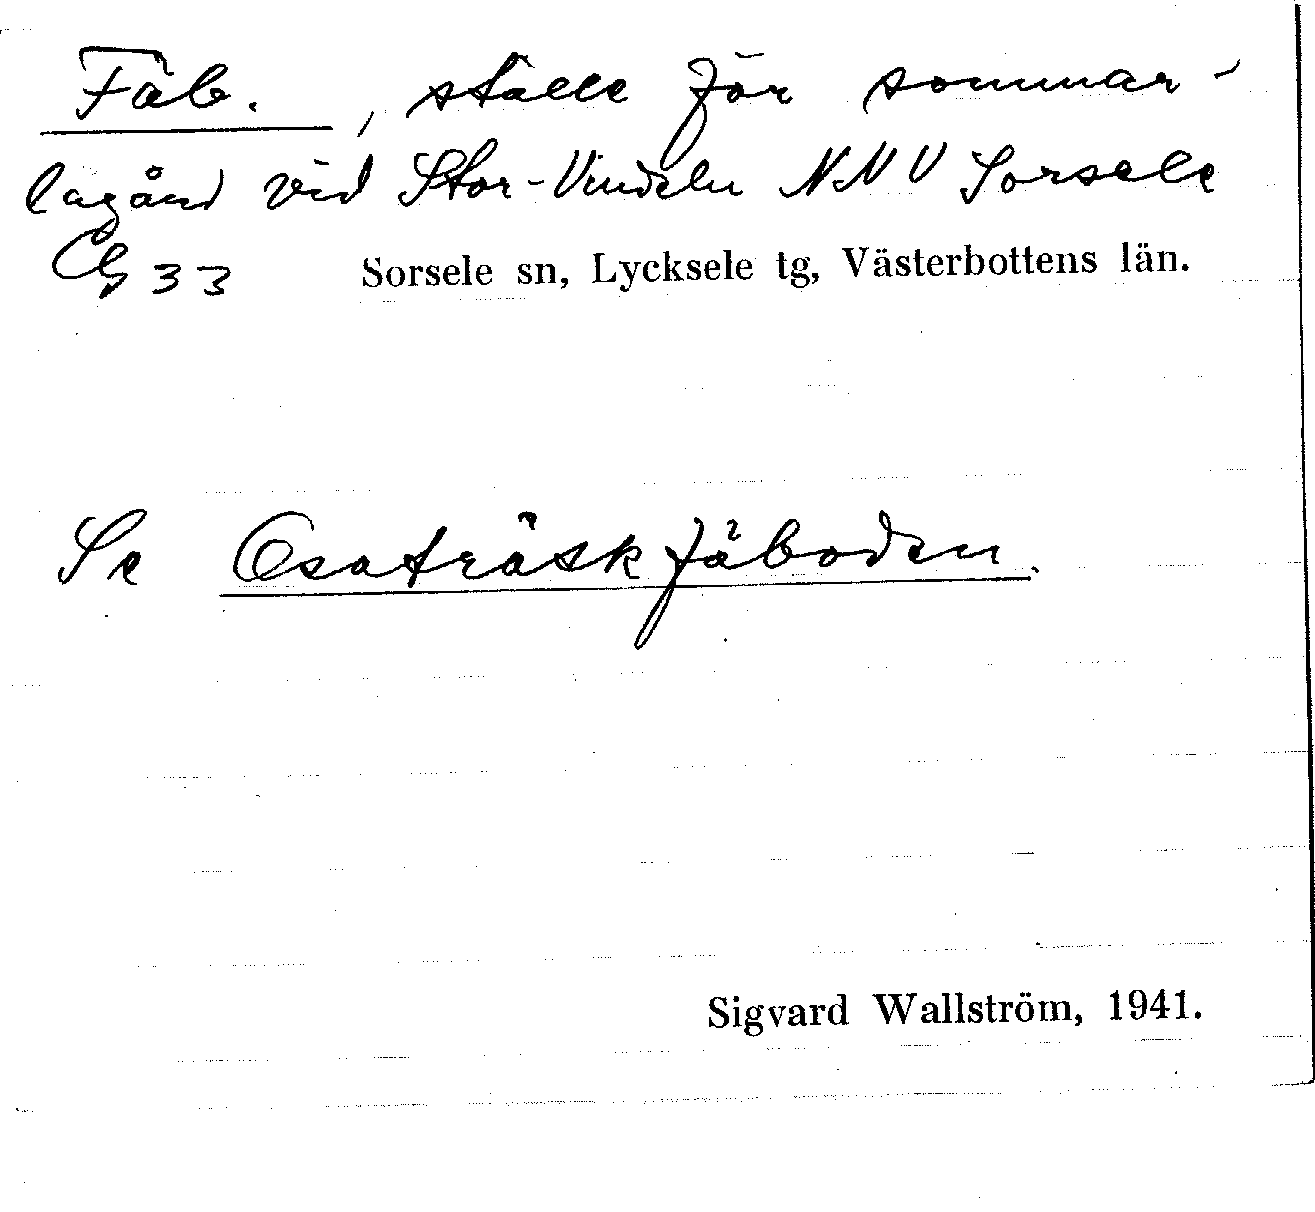 Fäb., ställe för sommar-
lagård vid Stor-Vindeln NNV Sorsele
Cg 33 Sorsele sn, Lycksele tg, Västerbottens län.
Se Osaträskfäboden.
Sigvard Wallström, 1941.